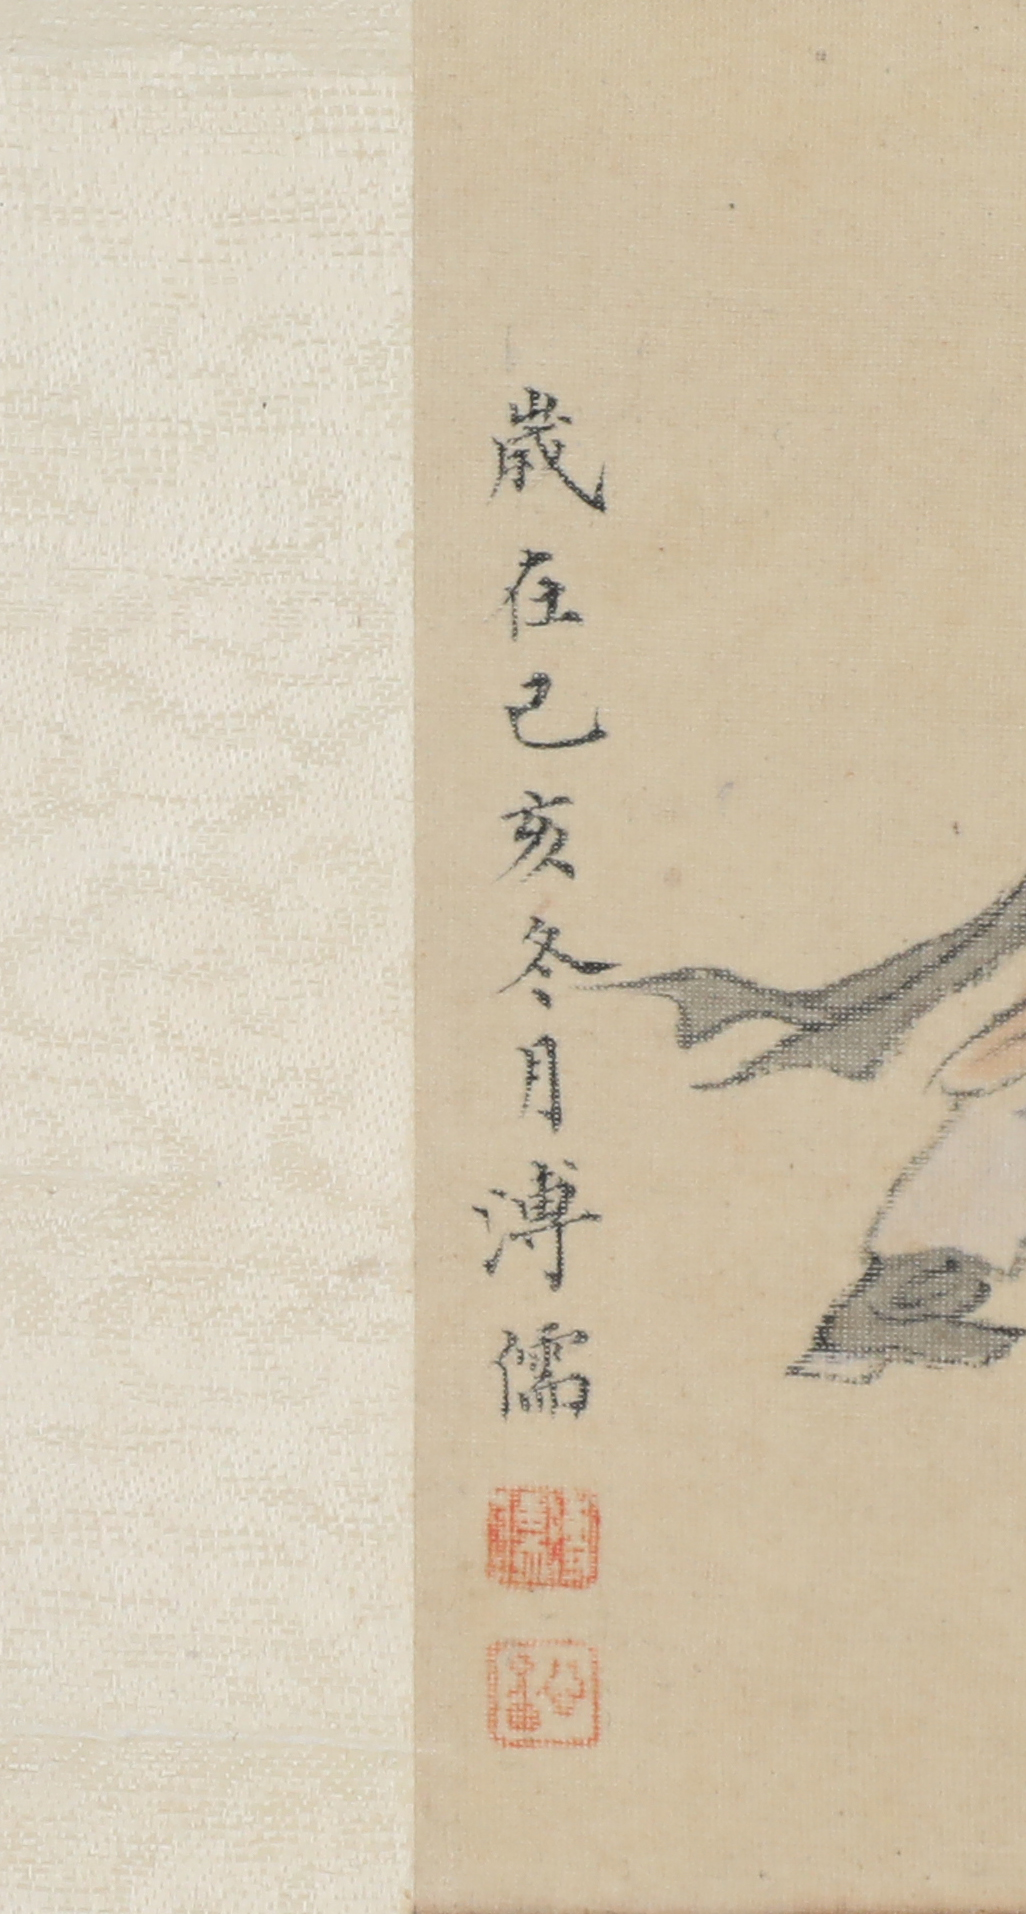 歲在己亥冬月溥儒